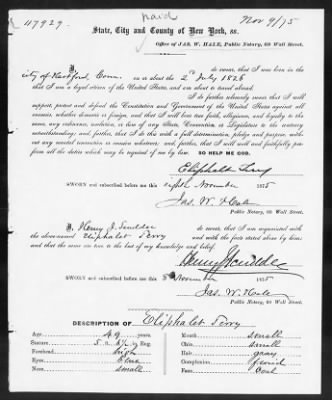 117929.
paid
Nov 9/75
State, City and County of New York, ss.
Office of JAS. W. HALE, Public Notary, 68 Wall Street.
I, do swear, that I was born in the
city of Hartford, Conn. on or about the 2nd July 1826
that I am a loyal citizen of the United States, and am about to travel abroad.
I do further solemnly swear that I will
support, protect and defend the Constitution and Government of the United States against all
enemies, whether domestic or foreign, and that I will bear true faith, allegiance, and loyalty to the
same, any ordinance, resolution, or law of any State, Convention or Legislature to the contrary
notwithstanding; and further, that I do this with a full determination, pledge and purpose, with-
out any mental reservation or evasion whatsoever; and further, that I will well and faithfully per-
form all the duties which may be required of me by law. SO HELP ME GOD.
Eliphalet Terry
SWORN and subscribed before me this eighth November 1875
Jas. W. Hale
Public Notary, 68 Wall Street.
I, Henry J. Scudder do swear, that I am acquainted with
the above-named Eliphalet Terry and with the facts stated above by him:
and that the same are true to the best of my knowledge and belief.
Henry J Scudder
SWORN and subscribed before me this 8 November 1875
Jas. W. Hale
Public Notary, 68 Wall Street.
DESCRIPTION OF Eliphalet Terry
Age, 49 years. Mouth small
Stature, 5 ft. Eng. Chin small
Forehead high Hair gray
Eyes blue Complexion florid
Nose small Face oval